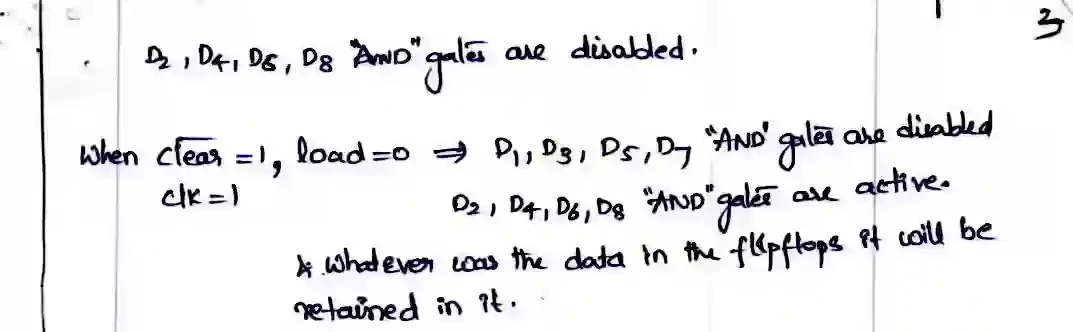 3
D2, D4, D6, D8 "AND" gates are disabled.
When c̅l̅e̅a̅r̅ = 1, load = 0 ⇒ D1, D3, D5, D7 "AND" gates are disabled
clk = 1 D2, D4, D6, D8 "AND" gates are active.
& whatever was the data in the flipflops it will be
retained in it.